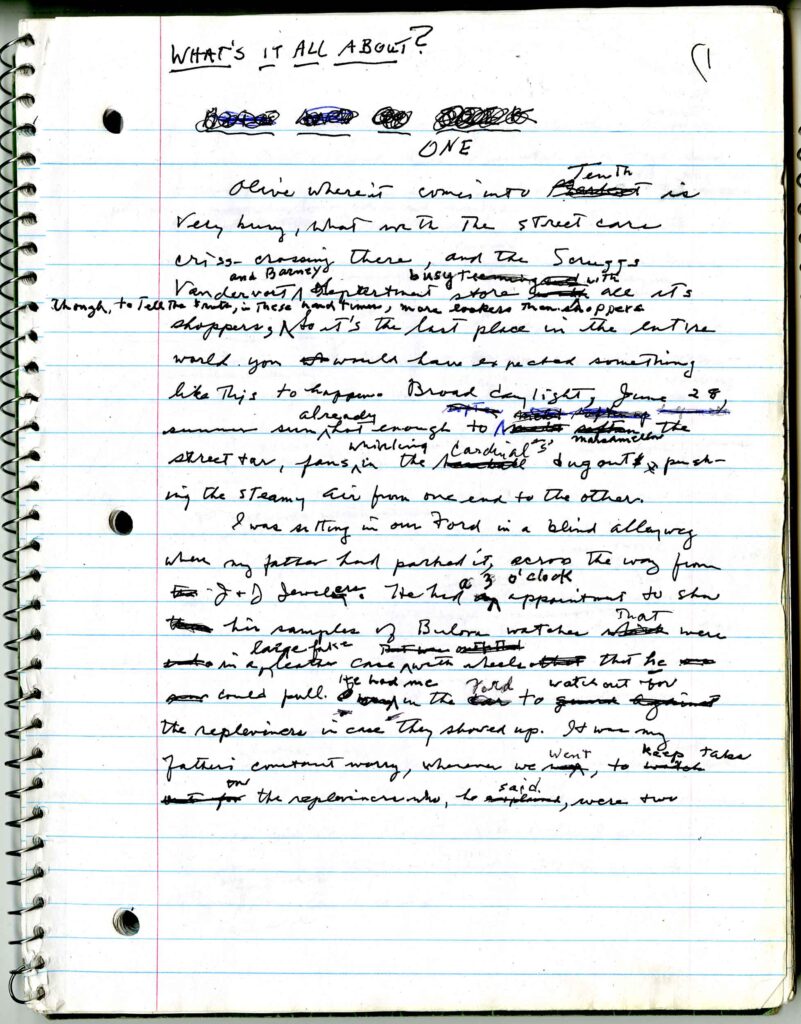 WHAT'S IT ALL ABOUT?
1
ONE
Tenth
Olive where it comes into is
very busy, what with the street cars
criss-crossing there, and the Scruggs
and Barney busy with
Vandervort department store all its
though, to tell the truth, in these hard times, more lookers than shoppers
shoppers, so it's the last place in the entire
world you would have expected something
like this to happen. Broad daylight, June 28,
already
summer sun hot enough to the
whirling Cardinals'
street tar, fans in the dugouts push-
ing the steamy air from one end to the other.
I was sitting in our Ford in a blind alleyway
where my father had parked it, across the way from
a 3 o'clock
J & J Jewelers. He had appointment to show
That
his samples of Bulova watches were
large fake
in a leather case with wheels that he
He had me Ford watch out for
could pull. in the to
the repleviners in case they showed up. It was my
went keep tabs
father's constant worry, wherever we, to
on said
the repleviners who, he, were two